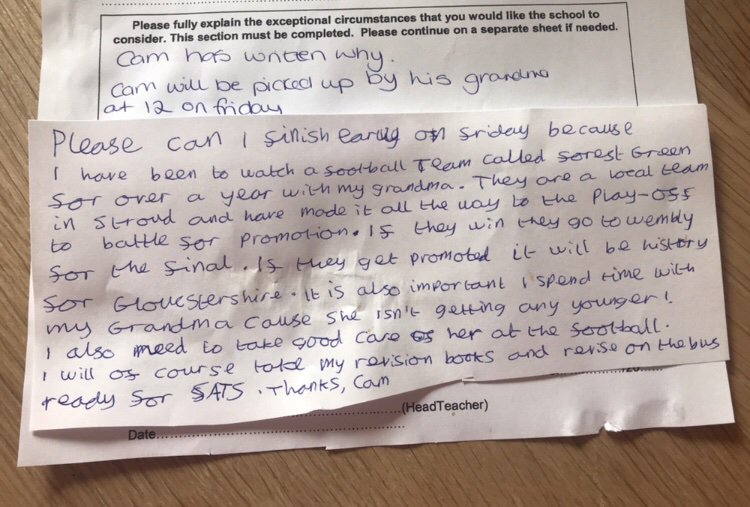 Please fully explain the exceptional circumstances that you would like the school to
consider. This section must be completed. Please continue on a separate sheet if needed.
Cam has written why.
Cam will be picked up by his grandma
at 12 on friday
Please can I finish early on friday because
I have been to watch a football Team called forest Green
for over a year with my grandma. They are a local team
in Stroud and have made it all the way to the Play-offs
to battle for promotion. If they win they go to wembly
for the final. If they get promoted it will be history
for Gloucstershire. It is also important I spend time with
my Grandma cause she isn't getting any younger!
I also need to take good care of her at the football.
I will of course take my revision books and revise on the bus
ready for SATS. Thanks, Cam
(HeadTeacher)
Date